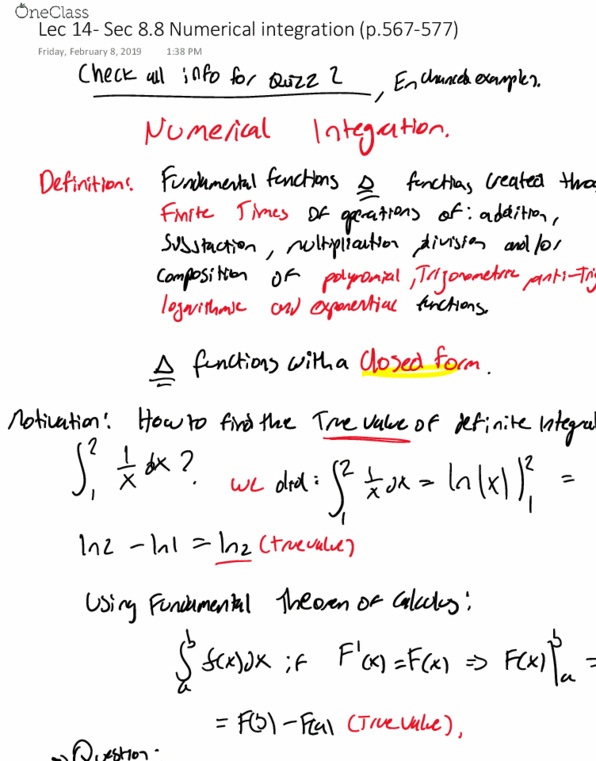 OneClass
Lec 14- Sec 8.8 Numerical integration (p.567-577)
Friday, February 8, 2019 1:38 PM
Check all info for Quizz 2, Enchanced examples.
Numerical Integration.
Definition: Fundmental functions ≜ functions created throu
Finite Times of operations of: addition,
Substaction, multiplication division and/or
composition of polynomial, Trigonometric anti-Trig
logarithmic and exponential functions.
≜ functions with a closed form.
Motivation: How to find the True value of definite Integral
∫₁² 1/x dx? we did: ∫₁² 1/x dx = ln(x)]₁² =
ln2 - ln1 = ln2 (True value)
Using Fundamental Theorem of Calculus:
∫ₐᵇ f(x)dx if F'(x) = F(x) ⇒ F(x)|ₐᵇ =
= F(b) - F(a) (True value),
Question: